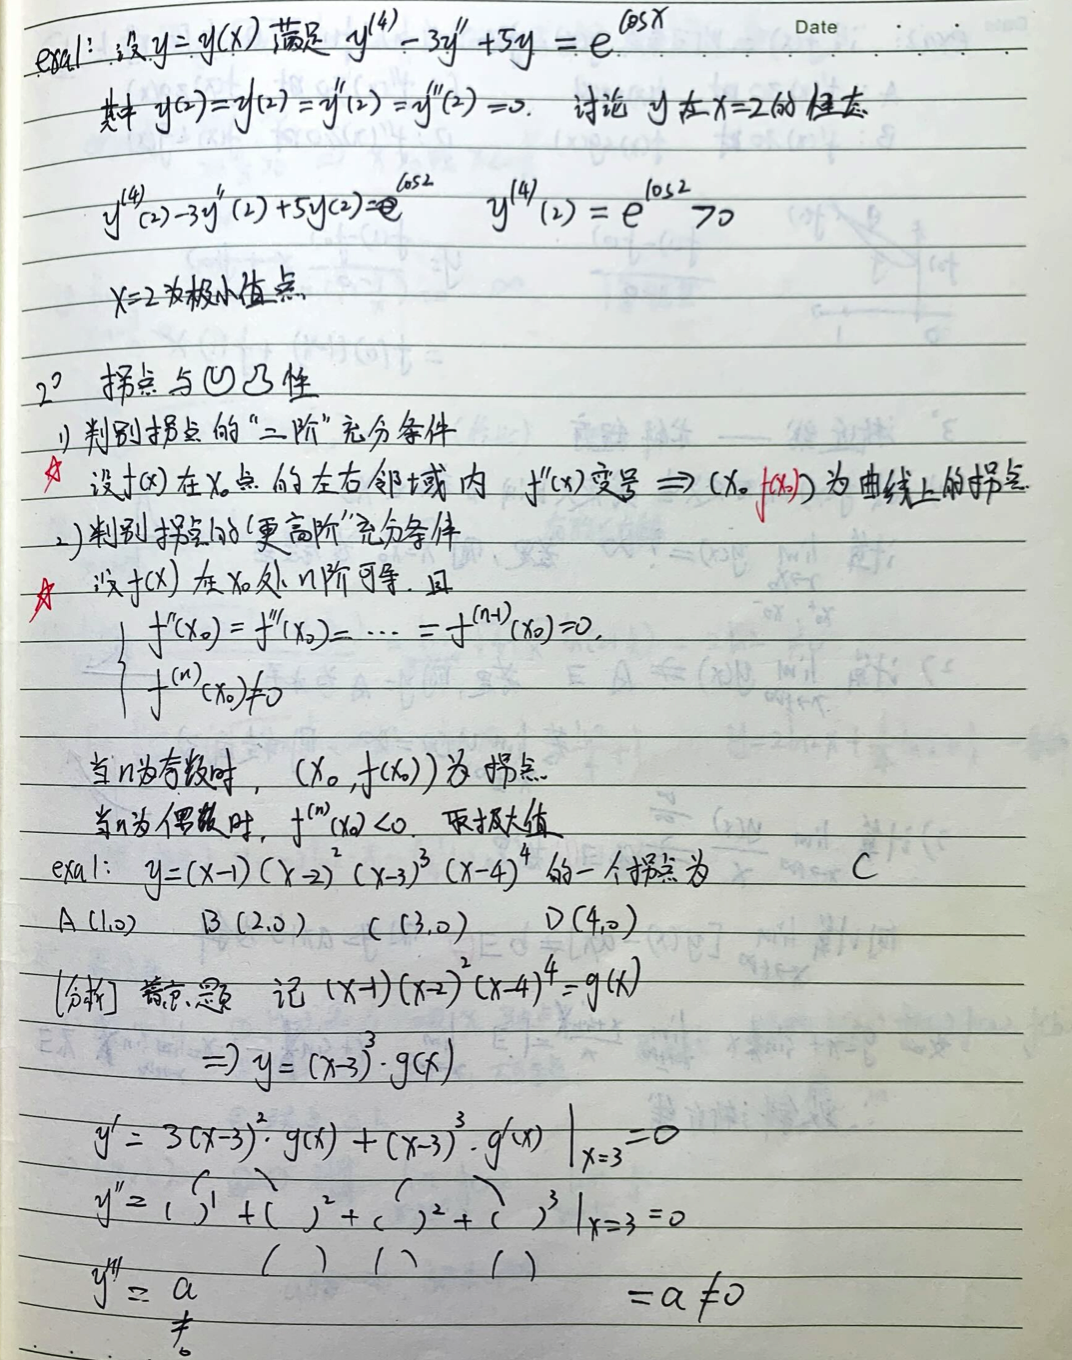 Date
exa1: 设y=y(x) 满足 y⁽⁴⁾-3y″+5y=e^{cosx}
其中 y(2)=y′(2)=y″(2)=y‴(2)=0. 讨论 y 在x=2的性态
y⁽⁴⁾(2)-3y″(2)+5y(2)=e^{cos2} y⁽⁴⁾(2)=e^{cos2}>0
x=2为极小值点
2° 拐点与凹凸性
1) 判别拐点的“二阶”充分条件
☆ 设f(x)在x₀点的左右邻域内 f″(x)变号 ⇒(x₀ f(x₀))为曲线上的拐点
2) 判别拐点的“更高阶”充分条件
☆ 设f(x)在x₀处n阶可导. 且
f″(x₀)=f‴(x₀)=…=f⁽ⁿ⁻¹⁾(x₀)=0.
f⁽ⁿ⁾(x₀)≠0
当n为奇数时, (x₀,f(x₀))为拐点
当n为偶数时, f⁽ⁿ⁾(x₀)<0. 取极大值
exa1: y=(x-1)(x-2)²(x-3)³(x-4)⁴的一个拐点为 C
A(1,0) B(2,0) C(3,0) D(4,0)
[分析] 记(x-1)(x-2)²(x-4)⁴=g(x)
⇒ y=(x-3)³·g(x)
y′=3(x-3)²·g(x)+(x-3)³·g′(x)|ₓ₌₃=0
y″=( )¹+( )²+( )²+( )³|ₓ₌₃=0
( ) ( ) ( )
y‴= a =a≠0
≠0